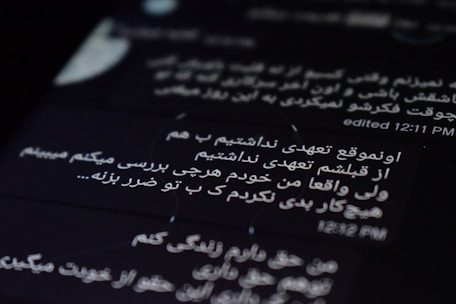 نمیزنم وقتی کسیو از ته قلبت
عاشقش باشی و اون آخر سرکاری کنه که تو
هیچوقت فکرشو نمیکردی به این روز میفتی
edited 12:11 PM
اونموقع تعهدی نداشتیم ب هم
از قبلشم تعهدی نداشتیم
ولی واقعا من خودم هرچی بررسی میکنم میبینم
هیچکار بدی نکردم ک ب تو ضرر بزنه...
12:12 PM
من حق دارم زندگی کنم
توهم حق داری
داری این حقو از خودت میگیری